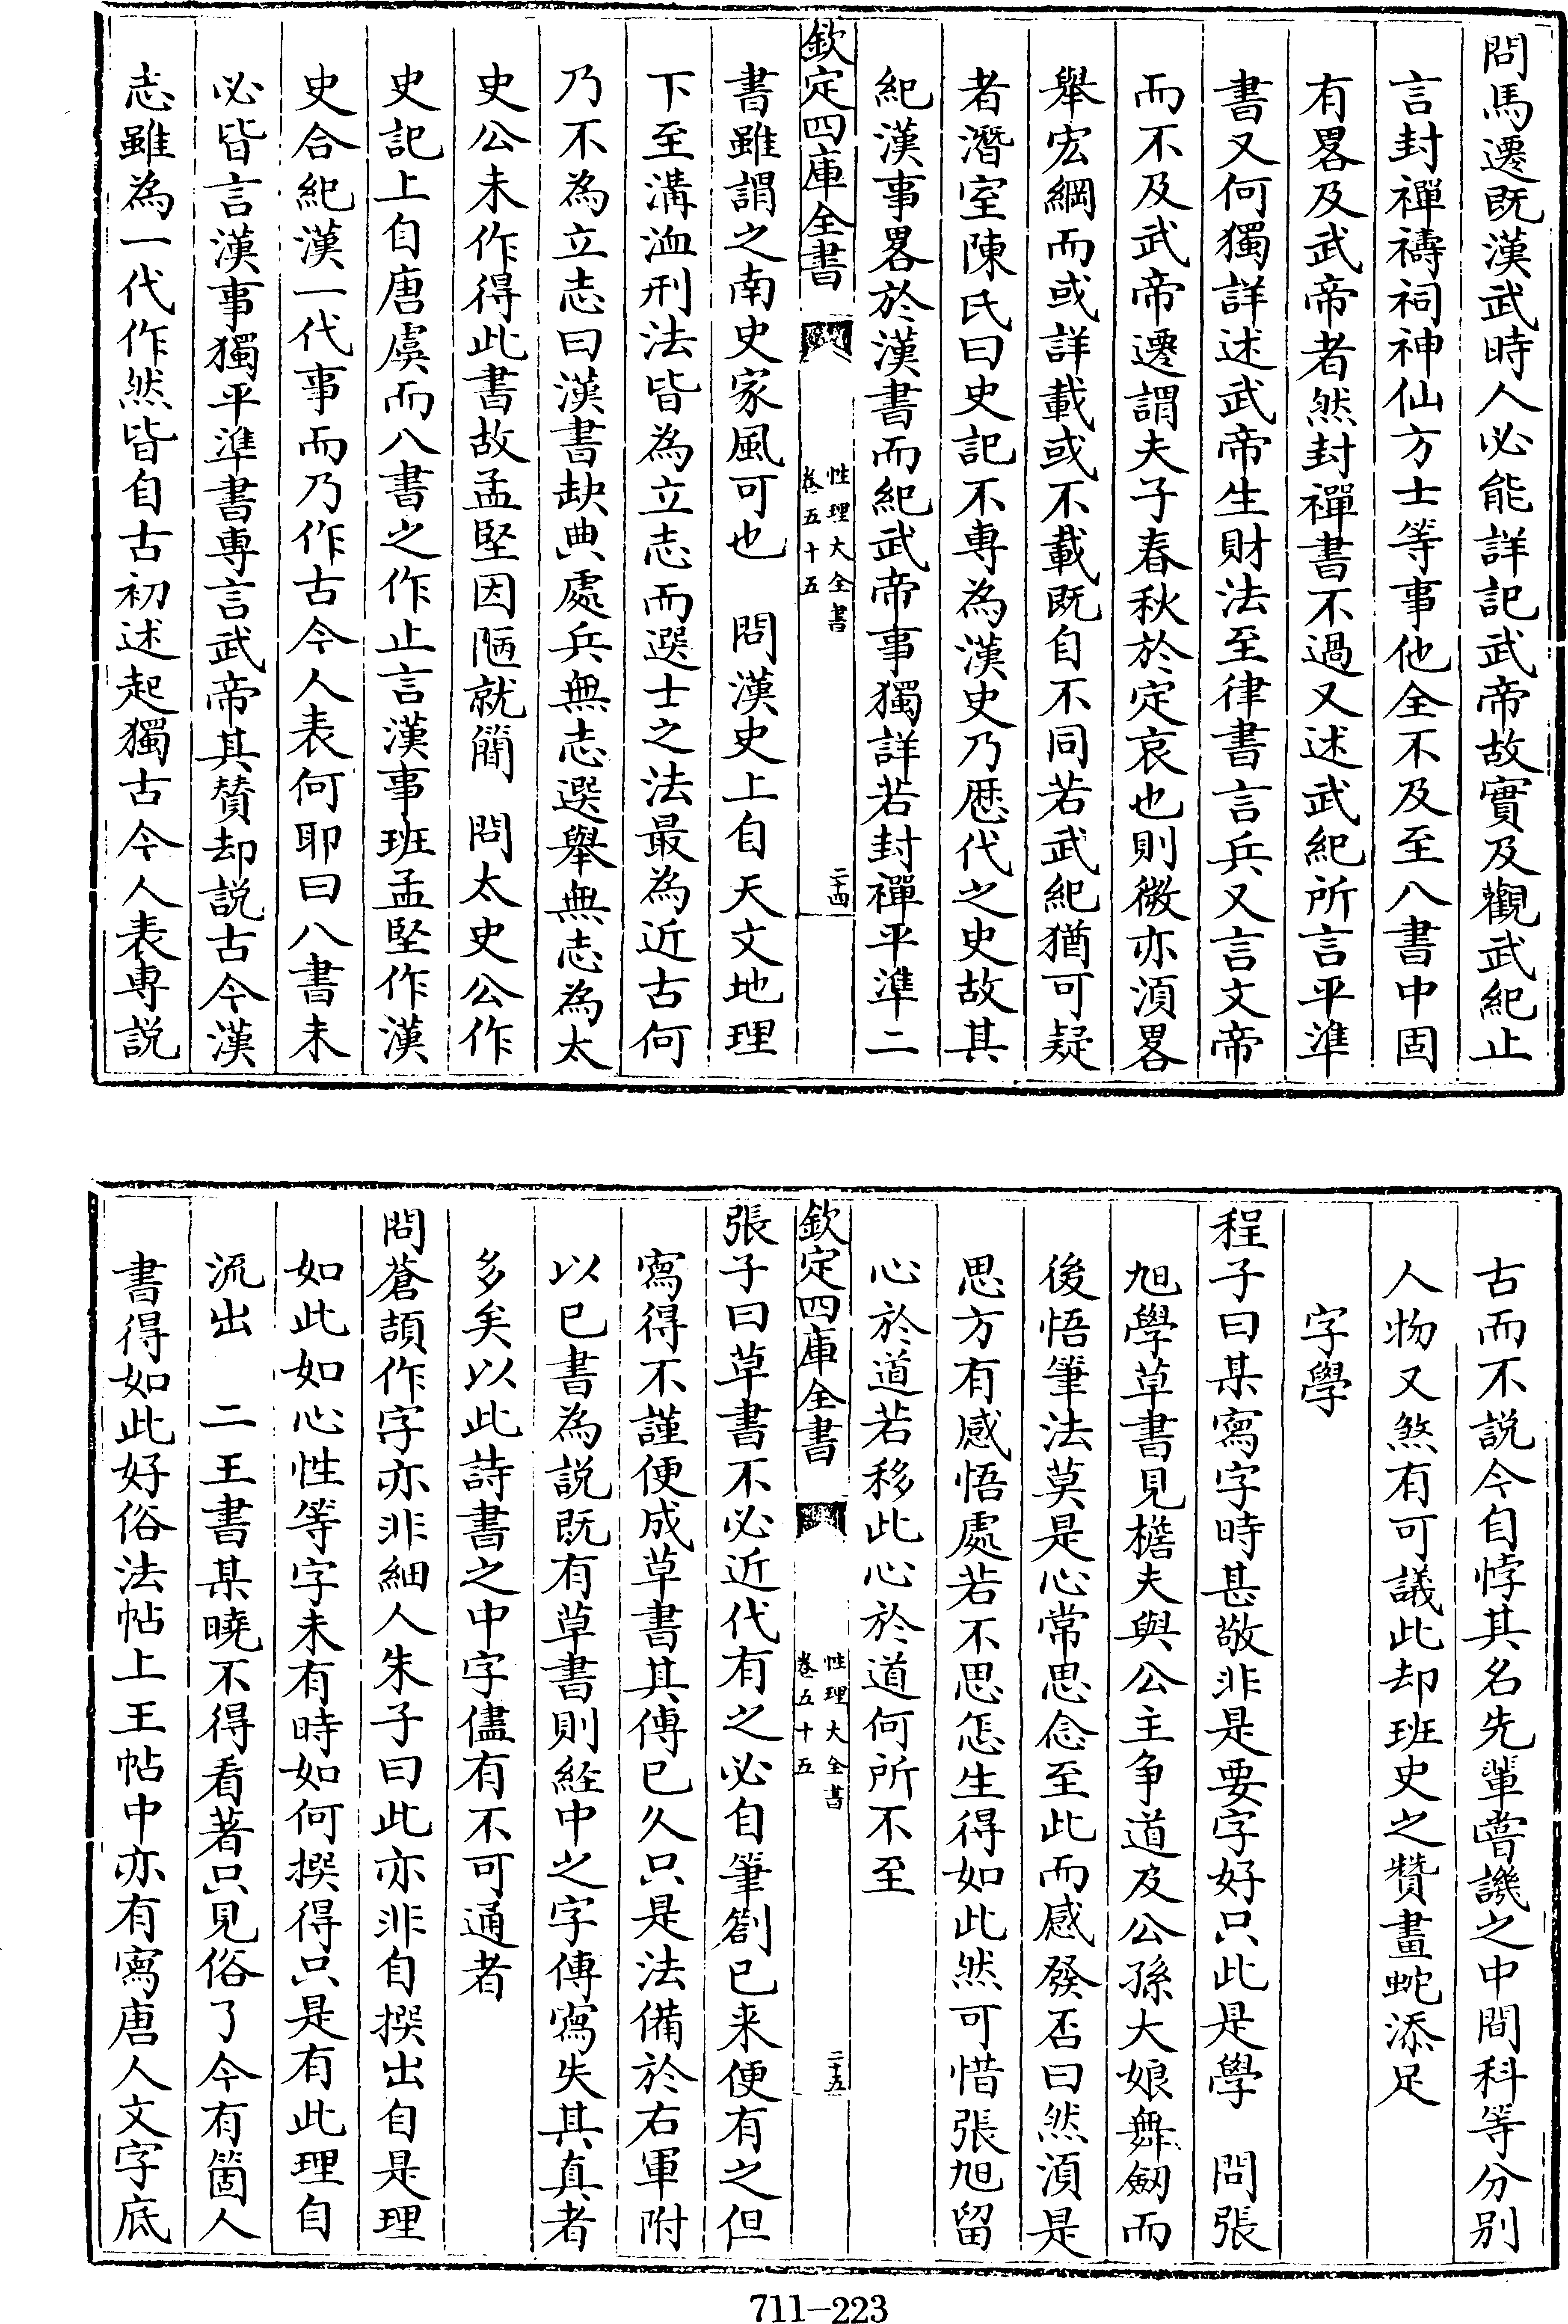 問馬遷既漢武時人必能詳記武帝故實及觀武紀止
言封禪禱祠神仙方士等事他全不及至八書中固
有畧及武帝者然封禪書不過又述武紀所言平準
書又何獨詳述武帝生財法至律書言兵又言文帝
而不及武帝遷謂夫子春秋於定哀也則微亦湏畧
舉宏綱而或詳載或不載既自不同若武紀猶可疑
者潛室陳氏曰史記不專為漢史乃歴代之史故其
紀漢事畧於漢書而紀武帝事獨詳若封禪平準二
欽定四庫全書
性理大全書
卷五十五
二十四
書雖謂之南史家風可也 問漢史上自天文地理
下至溝洫刑法皆為立志而選士之法最為近古何
乃不為立志曰漢書缺典處兵無志選舉無志為太
史公未作得此書故孟堅因陋就簡 問太史公作
史記上自唐虞而八書之作止言漢事班孟堅作漢
史合紀漢一代事而乃作古今人表何耶曰八書未
必皆言漢事獨平準書專言武帝其賛却説古今漢
志雖為一代作然皆自古初述起獨古今人表専説
古而不説今自悖其名先輩嘗譏之中間科等分别
人物又煞有可議此却班史之贅畫蛇添足
字學
程子曰某寫字時甚敬非是要字好只此是學 問張
旭學草書見檐夫與公主争道及公孫大娘舞劒而
後悟筆法莫是心常思念至此而感發否曰然湏是
思方有感悟處若不思怎生得如此然可惜張旭留
心於道若移此心於道何所不至
欽定四庫全書
性理大全書
卷五十五
二十五
張子曰草書不必近代有之必自筆劄已来便有之但
寫得不謹便成草書其傳已久只是法備於右軍附
以已書為説既有草書則經中之字傳寫失其真者
多矣以此詩書之中字儘有不可通者
問蒼頡作字亦非細人朱子曰此亦非自撰出自是理
如此如心性等字未有時如何撰得只是有此理自
流出 二王書某曉不得看著只見俗了今有箇人
書得如此好俗法帖上王帖中亦有寫唐人文字底
711-223